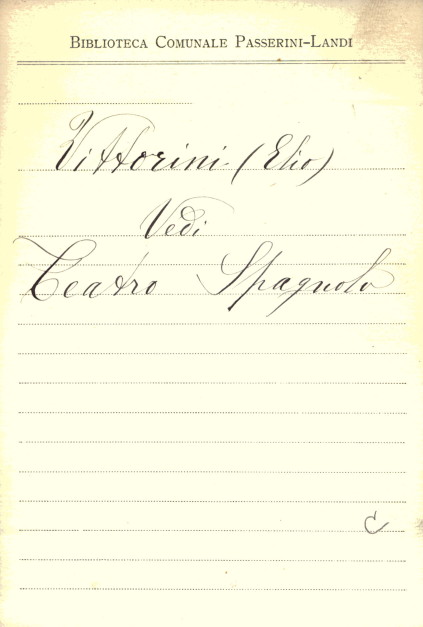 BIBLIOTECA COMUNALE PASSERINI-LANDI
Vittorini (Elio)
Vedi
Teatro Spagnolo
C